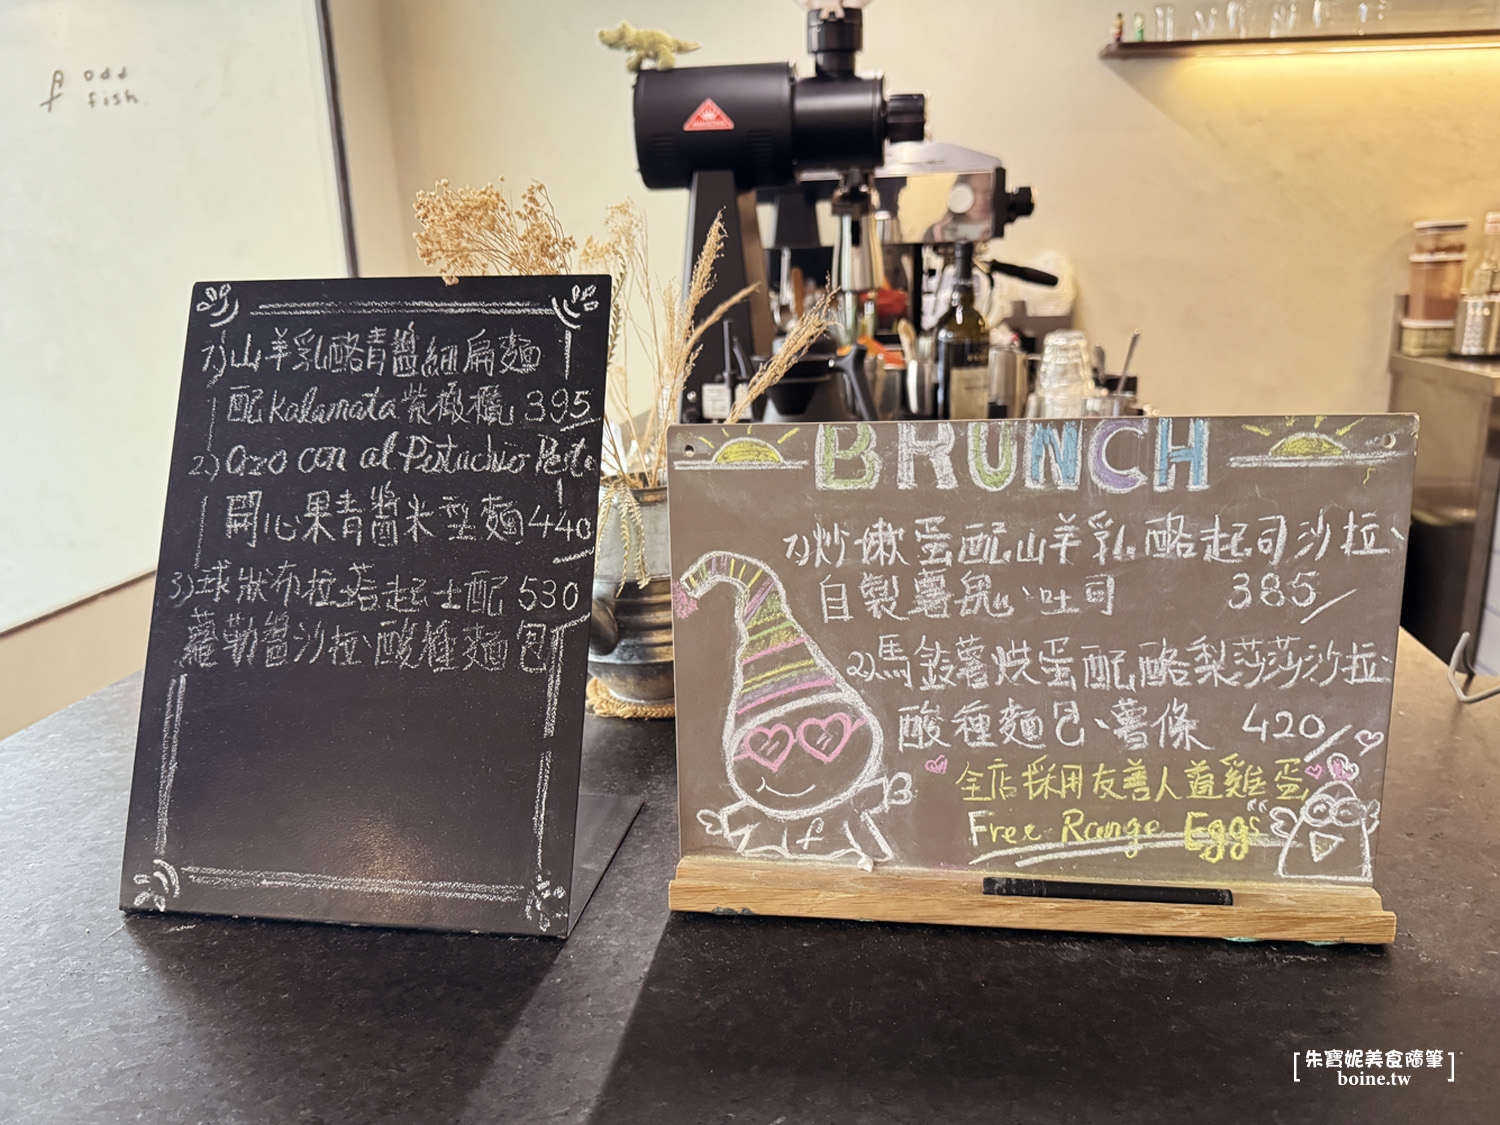 odd
fish
1)山羊乳酪青醬細扁麵
配Kalamata紫橄欖 395
2) Orzo con al Pistachio Pesta
開心果青醬米型麵440
3)球狀布拉塔起士配 530
蘿勒醬沙拉、酸種麵包
BRUNCH
1)炒嫩蛋配山羊乳酪起司沙拉、
自製薯泥、吐司 385
2)馬鈴薯烘蛋配酪梨莎莎沙拉、
酸種麵包、薯條 420
全店採用友善人道雞蛋
Free Range Eggs
朱寶妮美食隨筆
boine.tw